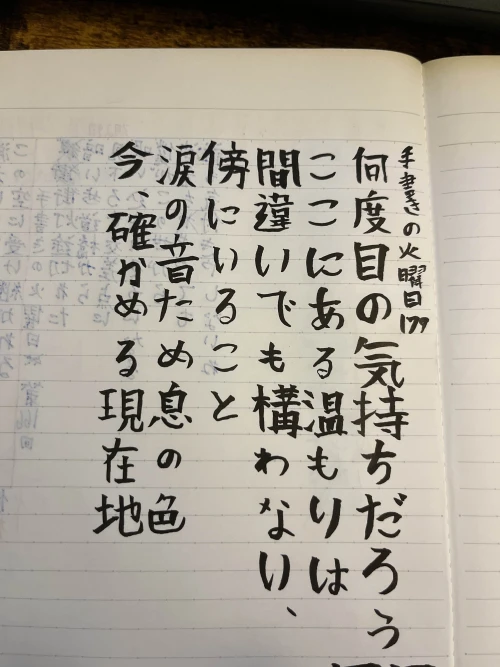 手書きの火曜日177
何度目の気持ちだろう
ここにある温もりは
間違いでも構わない、
傍にいること
涙の音ため息の色
今、確かめる現在地